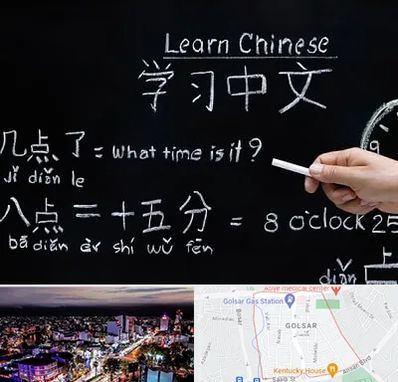 Learn Chinese
学习中文
几点了 = What time is it?
Jǐ diǎn le
八点二十五分 = 8 o'clock 25
bā diǎn èr shí wǔ fēn
diǎn
上
9
Golsar Gas Station
GOLSAR
Kentucky House